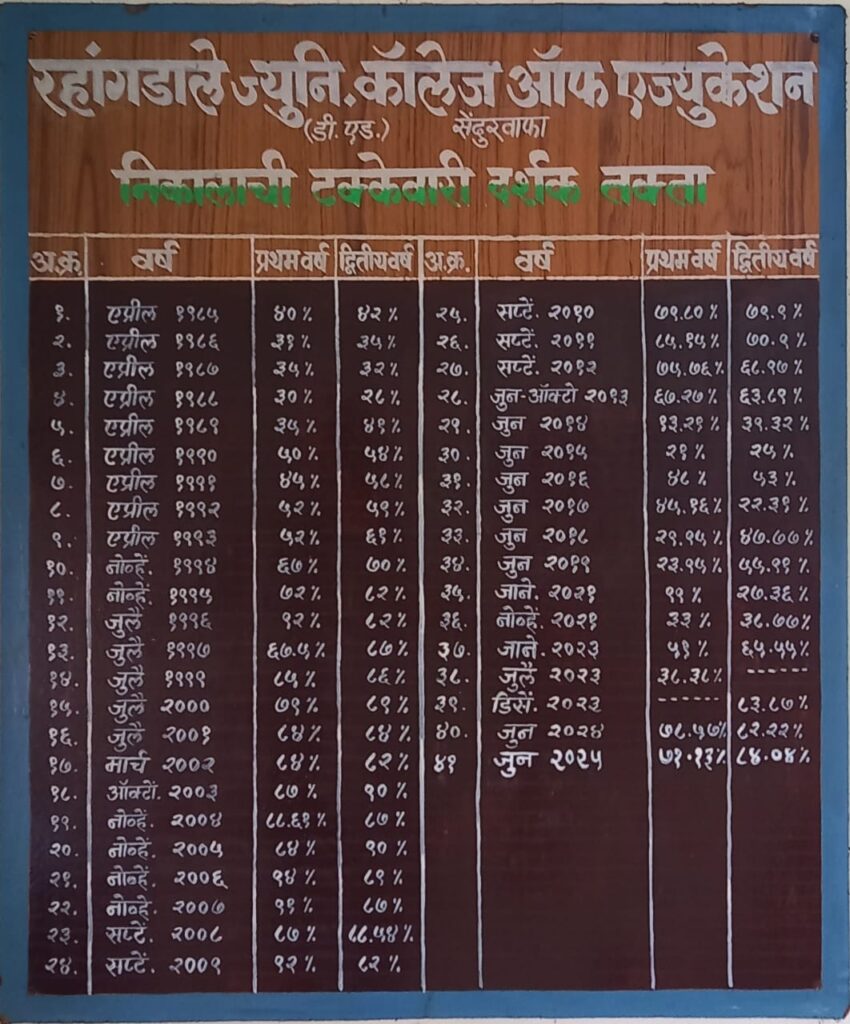 रहांगडाले ज्युनि. कॉलेज ऑफ एज्युकेशन
(डी. एड.) सेंदुरवाफा
निकालाची टक्केवारी दर्शक तक्ता
अ.क्र. वर्ष प्रथम वर्ष द्वितीय वर्ष
१. एप्रील १९८५ ४०% ४२%
२. एप्रील १९८६ ३१% ३५%
३. एप्रील १९८७ ३५% ३२%
४. एप्रील १९८८ ३०% २८%
५. एप्रील १९८९ ३५% ४१%
६. एप्रील १९९० ५०% ५४%
७. एप्रील १९९१ ४५% ५८%
८. एप्रील १९९२ ५२% ५९%
९. एप्रील १९९३ ५२% ६१%
१०. नोव्हें. १९९४ ६७% ७०%
११. नोव्हें. १९९५ ७२% ८२%
१२. जुलै १९९६ ९२% ८२%
१३. जुलै १९९७ ६७.५% ८७%
१४. जुलै १९९९ ८५% ८६%
१५. जुलै २००० ७९% ८९%
१६. जुलै २००१ ८४% ८४%
१७. मार्च २००२ ८४% ८२%
१८. ऑक्टों. २००३ ८७% ९०%
१९. नोव्हें. २००४ ८८.६१% ८७%
२०. नोव्हें. २००५ ८४% ९०%
२१. नोव्हें. २००६ ९४% ८९%
२२. नोव्हें. २००७ ९१% ८७%
२३. सप्टें. २००८ ८७% ८८.५४%
२४. सप्टें. २००९ ९२% ८२%
अ.क्र. वर्ष प्रथम वर्ष द्वितीय वर्ष
२५. सप्टें. २०१० ७९.८०% ७९.९%
२६. सप्टें. २०११ ८५.१५% ७०.९%
२७. सप्टें. २०१२ ७५.७६% ६८.१७%
२८. जुन-ऑक्टो २०१३ ६७.२७% ६३.८९%
२९. जुन २०१४ १३.२१% ३९.३२%
३०. जुन २०१५ २१% २५%
३१. जुन २०१६ ४८% ५३%
३२. जुन २०१७ ४५.१६% २२.३१%
३३. जुन २०१८ २९.१५% ४७.७७%
३४. जुन २०१९ २३.१५% ५५.११%
३५. जाने. २०२१ ११% २७.३६%
३६. नोव्हें. २०२१ ३३% ३८.७७%
३७. जाने. २०२३ ५१% ६५.५५%
३८. जुलै २०२३ ३८.३८% ------
३९. डिसें. २०२३ ------ ८३.८७%
४०. जुन २०२४ ७८.५७% ८२.२२%
४१ जुन २०२५ ७१.१३% ८४.०४%